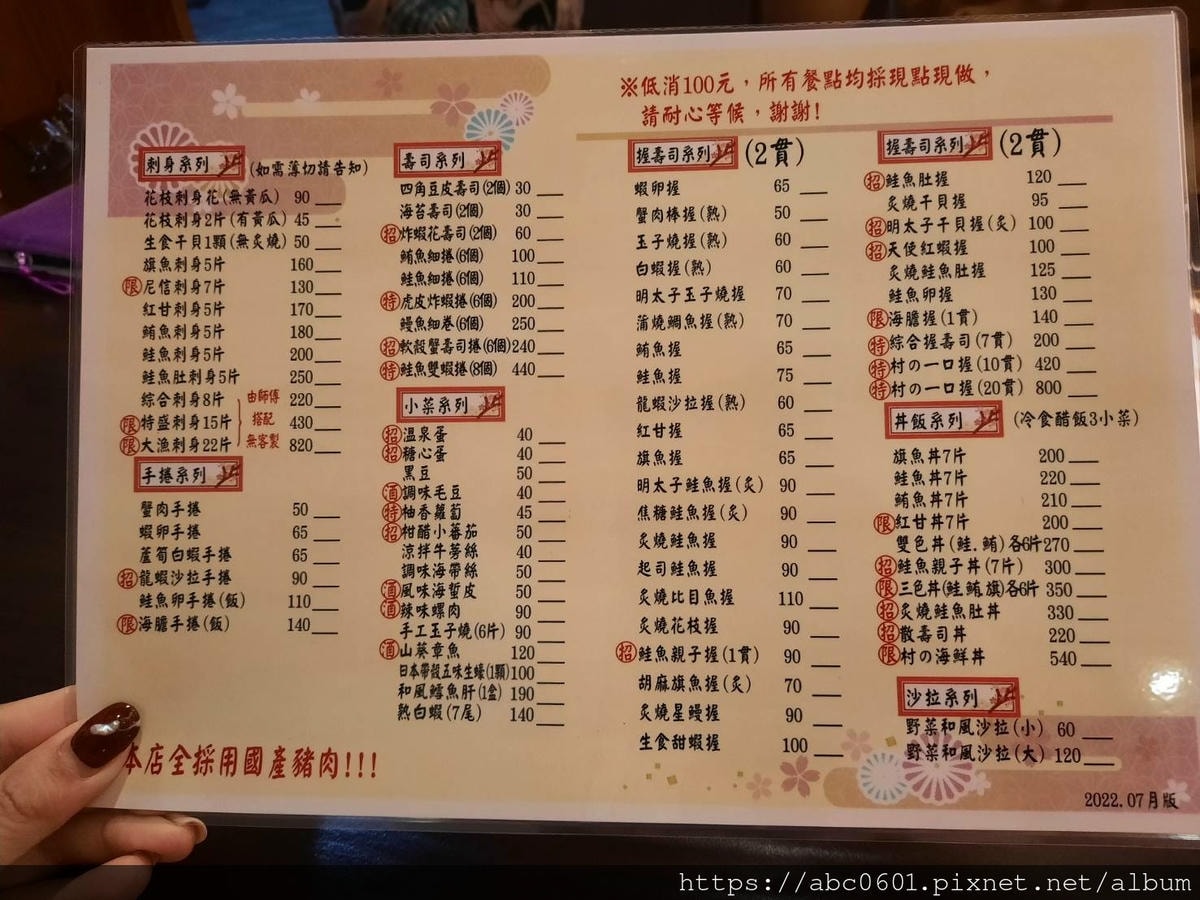 ※低消100元，所有餐點均採現點現做，
請耐心等候，謝謝!
刺身系列 (如需薄切請告知)
花枝刺身花(無黃瓜) 90
花枝刺身2片(有黃瓜) 45
生食干貝1顆(無炙燒) 50
旗魚刺身5片 160
限 尼信刺身7片 130
紅甘刺身5片 170
鮪魚刺身5片 180
鮭魚刺身5片 200
鮭魚肚刺身5片 250
綜合刺身8片 220
限 特盛刺身15片 430
限 大漁刺身22片 820
由師傅
搭配
無客製
手捲系列
蟹肉手捲 50
蝦卵手捲 65
蘆筍白蝦手捲 65
招 龍蝦沙拉手捲 90
鮭魚卵手捲(飯) 110
限 海膽手捲(飯) 140
本店全採用國產豬肉!!!
壽司系列
四角豆皮壽司(2個) 30
海苔壽司(2個) 30
招 炸蝦花壽司(2個) 60
鮪魚細捲(6個) 100
鮭魚細捲(6個) 110
特 虎皮炸蝦捲(6個) 200
鰻魚細卷(6個) 250
招 軟殼蟹壽司捲(6個) 240
特 鮭魚雙蝦捲(8個) 440
小菜系列
招 溫泉蛋 40
招 糖心蛋 40
黑豆 40
酒 調味毛豆 40
特 柚香蘿蔔 45
招 柑醋小蕃茄 50
涼拌牛蒡絲 40
調味海帶絲 50
酒 風味海蜇皮 50
酒 辣味螺肉 90
手工玉子燒(6片) 90
酒 山葵章魚 120
日本帶殼五味生蠔(1顆) 100
和風鱈魚肝(1盒) 190
熟白蝦(7尾) 140
握壽司系列 (2貫)
蝦卵握 65
蟹肉棒握(熟) 50
玉子燒握(熟) 60
白蝦握(熟) 60
明太子玉子燒握 70
蒲燒鯛魚握(熟) 70
鮪魚握 65
鮭魚握 75
龍蝦沙拉握(熟) 60
紅甘握 65
旗魚握 65
明太子鮭魚握(炙) 90
焦糖鮭魚握(炙) 90
炙燒鮭魚握 90
起司鮭魚握 90
炙燒比目魚握 110
炙燒花枝握 90
招 鮭魚親子握(1貫) 90
胡麻旗魚握(炙) 70
炙燒星鰻握 90
生食甜蝦握 100
握壽司系列 (2貫)
招 鮭魚肚握 120
炙燒干貝握 95
招 明太子干貝握(炙) 100
招 天使紅蝦握 100
炙燒鮭魚肚握 125
鮭魚卵握 130
限 海膽握(1貫) 140
特 綜合握壽司(7貫) 200
特 村の一口握(10貫) 420
特 村の一口握(20貫) 800
丼飯系列 (冷食醋飯3小菜)
旗魚丼7片 200
鮭魚丼7片 220
鮪魚丼7片 210
限 紅甘丼7片 200
雙色丼(鮭.鮪)各6片 270
招 鮭魚親子丼(7片) 300
限 三色丼(鮭 鮪 旗)各6片 350
招 炙燒鮭魚肚丼 330
招 散壽司丼 220
限 村の海鮮丼 540
沙拉系列
野菜和風沙拉(小) 60
野菜和風沙拉(大) 120
2022.07月版
https://abc0601.pixnet.net/album